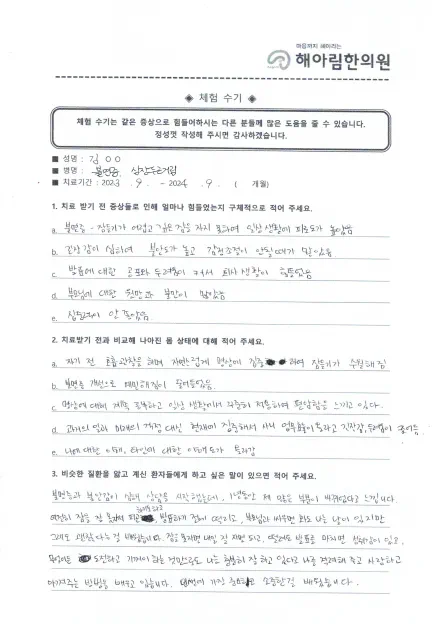 마음까지 해아리는
해아림한의원
◈ 체험 수기 ◈
체험 수기는 같은 증상으로 힘들어하시는 다른 분들께 많은 도움을 줄 수 있습니다.
정성껏 작성해 주시면 감사하겠습니다.
■ 성명 : 김 ㅇㅇ
■ 병명 : 불면증, 심장두근거림
■ 치료기간 : 2023 . 9 . - 2024 . 9 . ( 개월)
1. 치료 받기 전 증상들로 인해 얼마나 힘들었는지 구체적으로 적어 주세요.
a. 불면증 - 잠들기가 어렵고 깊은 잠을 자지 못하여 일상생활이 피로도가 높았음
b. 긴장감이 심하여 불안도가 높고 감정조절이 안될때가 많았음
c. 발표에 대한 공포와 두려움이 커서 회사생활이 힘들었음
d. 부모님에 대한 원망과 불만이 많았음
e. 심장이 안 좋았음.
2. 치료받기 전과 비교해 나아진 몸 상태에 대해 적어 주세요.
a. 자기 전 호흡관찰을 하며 자연스럽게 명상에 집중하여 잠들기가 수월해짐
b. 불면증 개선으로 예민해짐이 줄어들었음.
c. 명상에 대해 계속 공부하고 일상 생활에서 꾸준히 적용하며 편안함을 느끼고 있다.
d. 과거의 일과 미래의 걱정 대신 현재에 집중해서 사니 긴장감, 두려움이 줄어듬
e. 나에 대한 이해, 타인에 대한 이해도가 높아짐
3. 비슷한 질환을 앓고 계신 환자들에게 하고 싶은 말이 있으면 적어 주세요.
불면증과 불안감이 심해 상담을 시작했는데, 1년동안 제 많은 부분이 바뀌었다고 느낍니다.
여전히 잠을 잘 못자면 피곤하고 발표하기 전에 떨리고, 부모님과 싸우면 화도 나는 날이 있지만
그래도 괜찮다는 걸 배웠습니다. 잠을 못자면 내일 잘 자면 되고, 떨려도 발표를 마치면 성취감이 있고,
도전하고 기꺼이 하는 것만으로도 나는 충분히 잘 하고 있다고 나를 격려해 주고 사랑하고
아껴주는 방법을 배우고 있습니다. 인생에 가장 중요하고 소중한걸 배웠습니다.